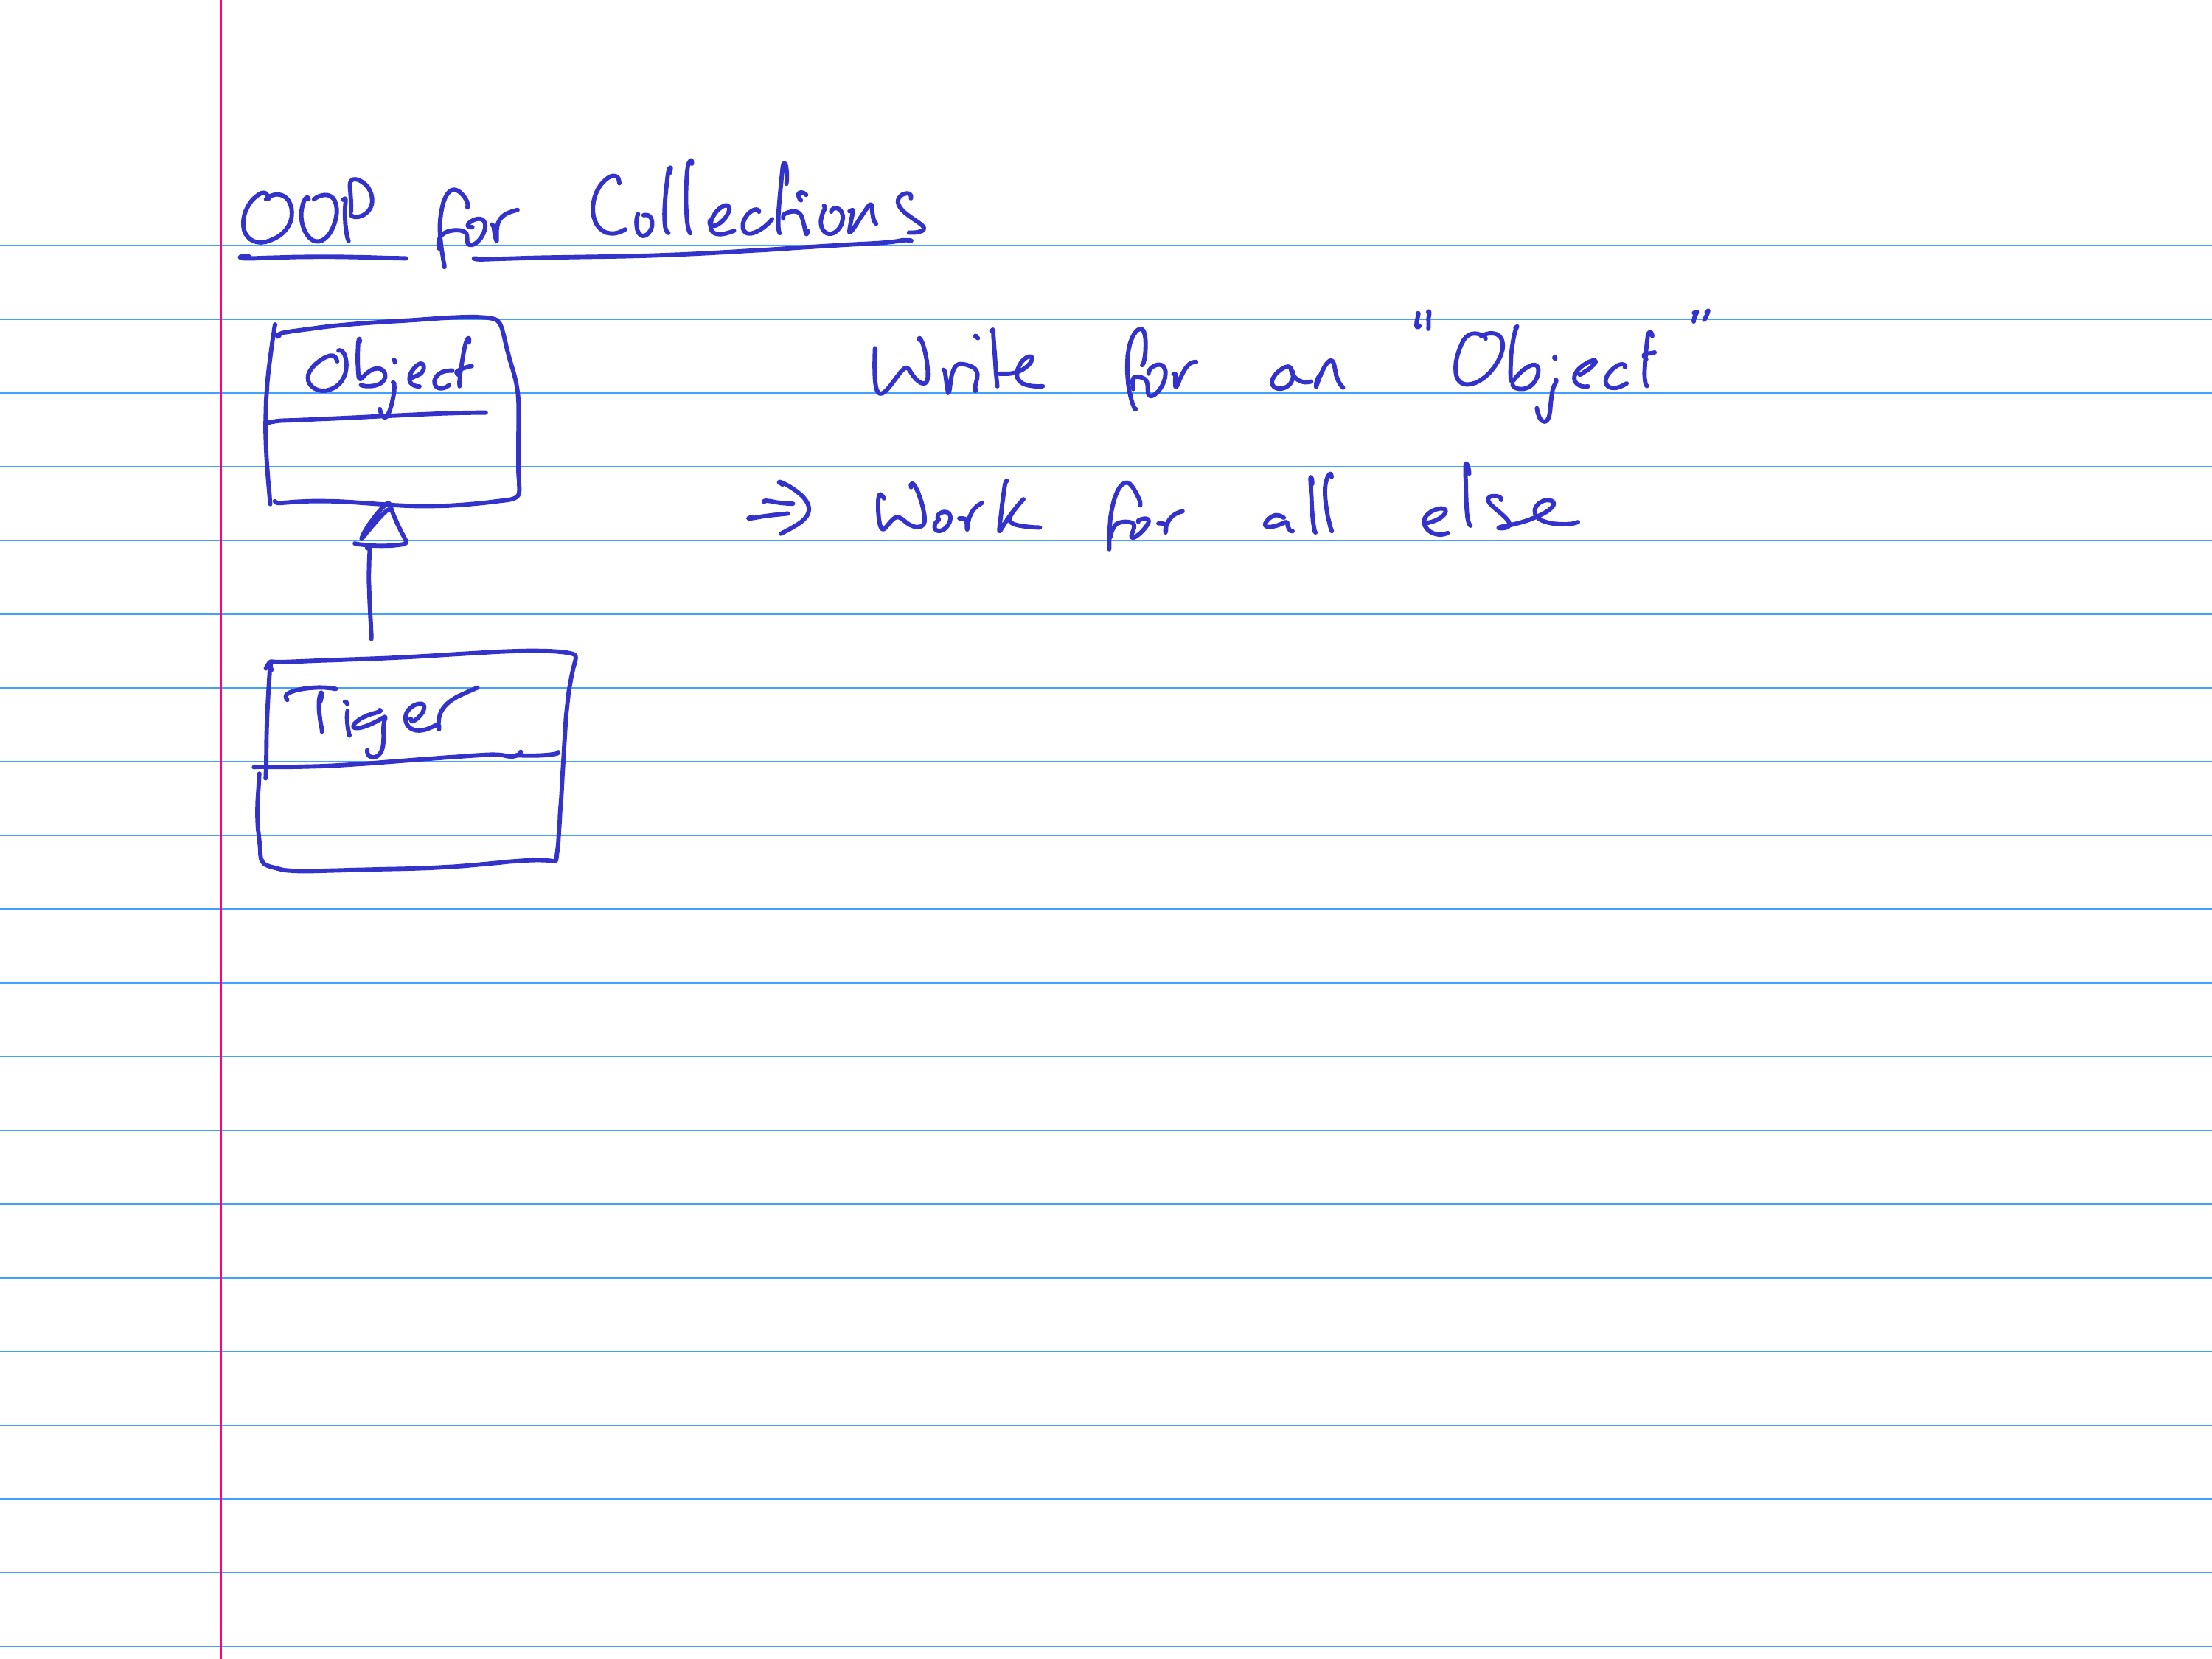 OOP for Collections
Object
Write for an "Object"
⇒ Work for all else
Tiger